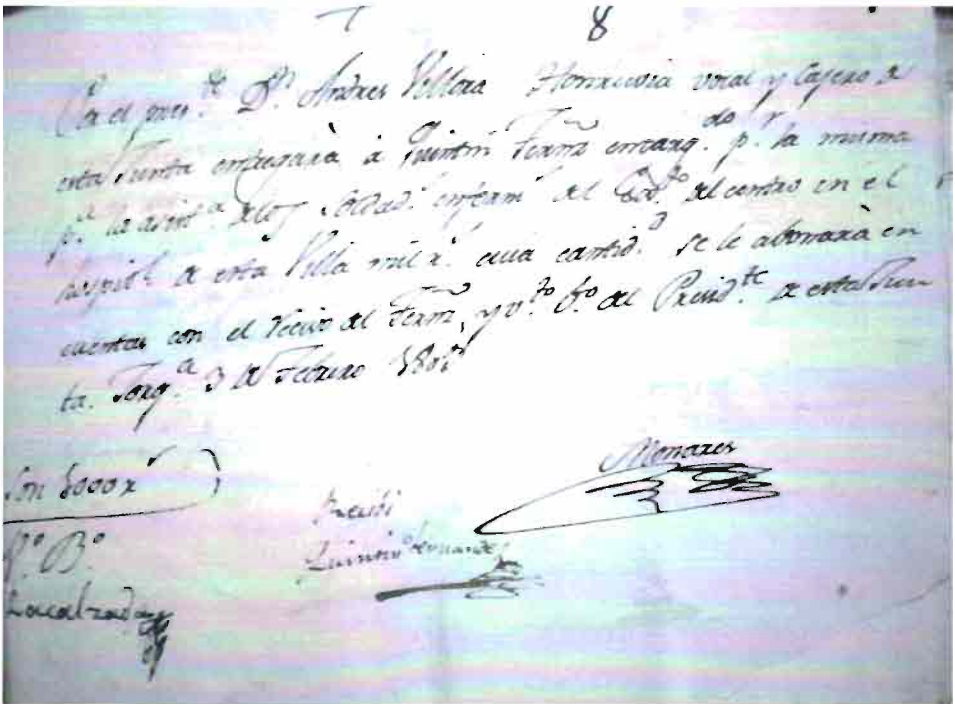 8
el pres.te D.n Andres Villora vocal y Cajero de
esta Junta entregará á Quintin Fern.z encarg.do p.r la misma
p.a la asist.a de los Soldad.s enferm.s del Ex.to del centro en el
hospit.l de esta Villa mil r.s cuia cantid.d se le abonará en
cuentas con el Recivo del Fern.z, y v.to b.o del Presid.te de esta Jun
ta. 3 de Febrero
Son r.s
Monares
Recibi
Quintin Fernandez
V.o B.o